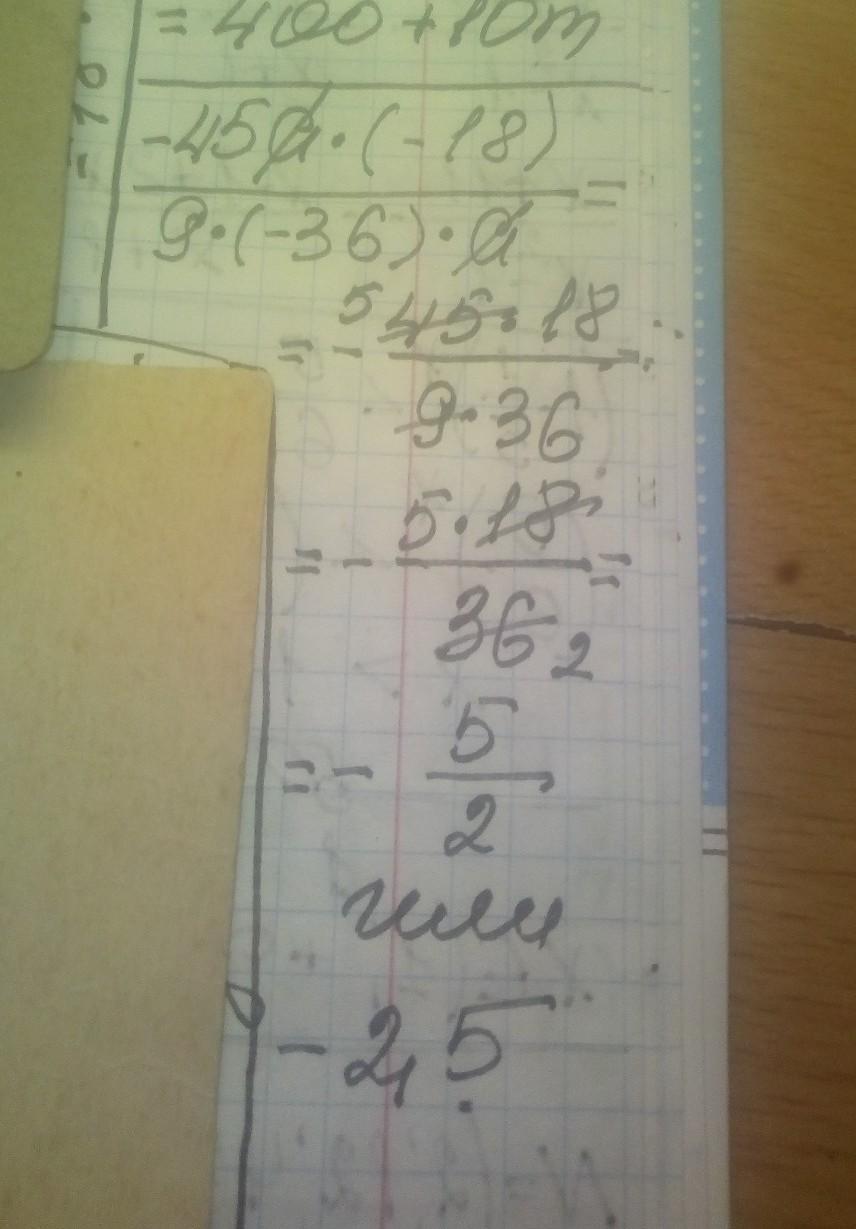 = 400 + 10m
-45a·(-18)
9·(-36)·a =
= - 5 45·18 =
9·36
= - 5·18 =
36 2
= - 5
2
или
- 2,5